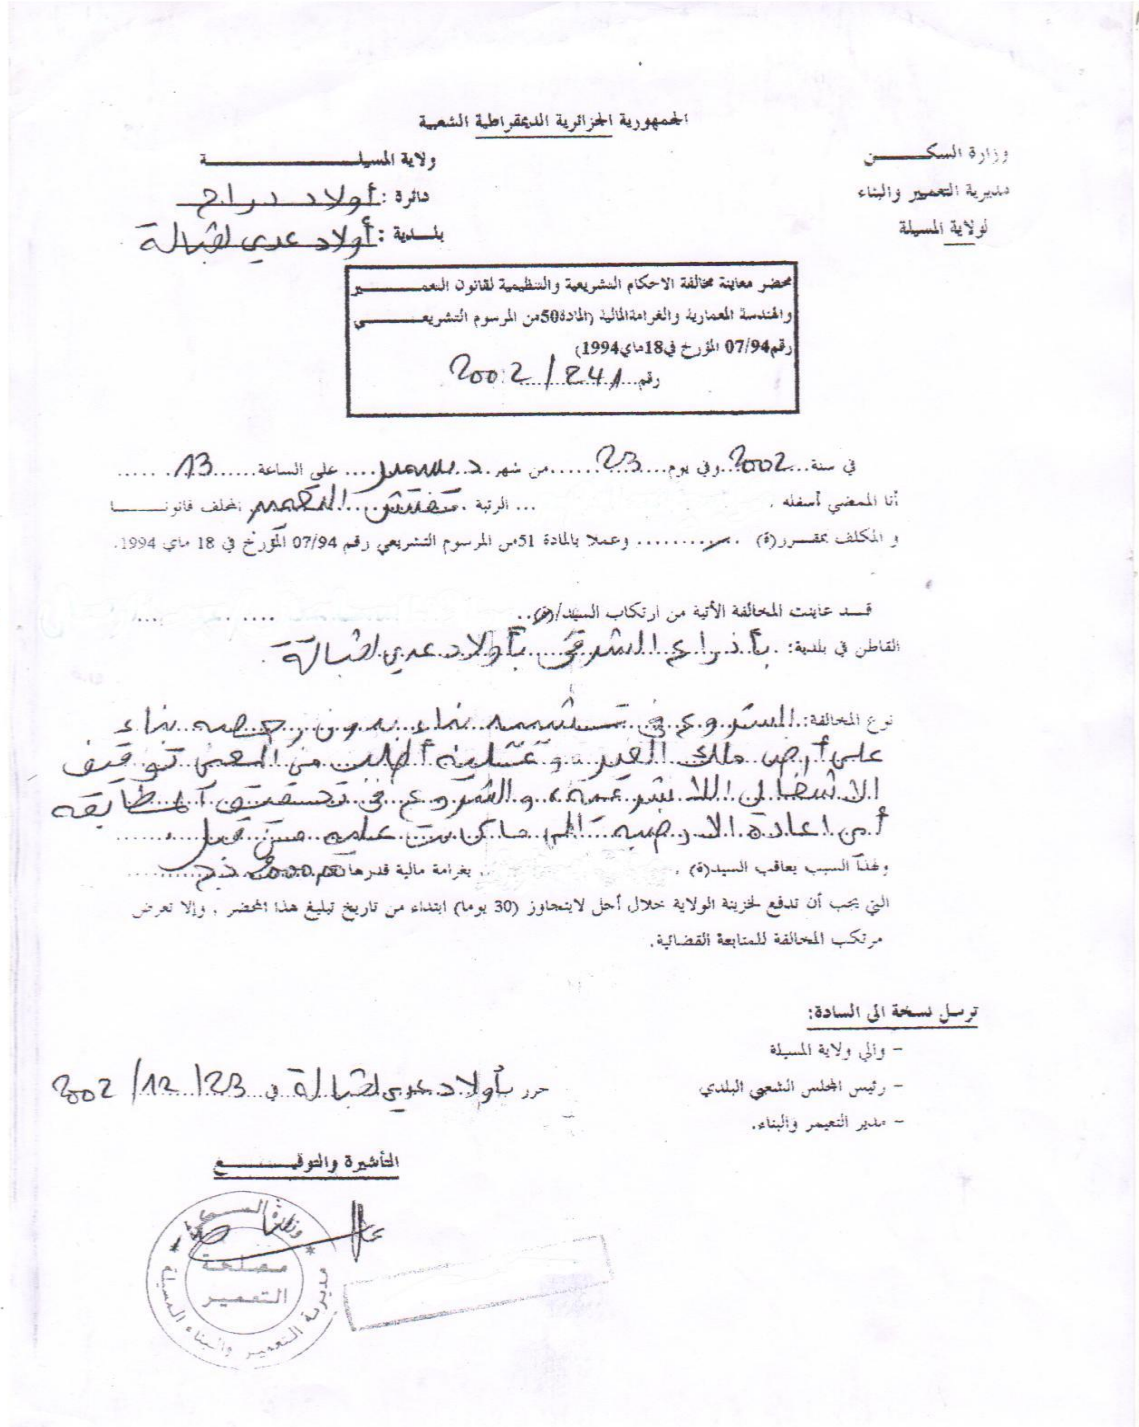 الجمهورية الجزائرية الديمقراطية الشعبية
وزارة السكـــن
مديرية التعمير والبناء
لولاية المسيلة
ولاية المسيلـــــــــة
دائرة : أولاد دراج
بلـدية : أولاد عدي لقبالة
محضر معاينة مخالفة الاحكام التشريعية والتنظيمية لقانون التعمـــــير
والهندسة المعمارية والغرامةالمالية (المادة50من المرسوم التشريعــــــي
رقم07/94 المؤرخ في18ماي1994)
رقم 241 / 2002
في سنة 2002 وفي يوم 23 من شهر ديسمبر على الساعة 13
أنا الممضي أسفله . ... الرتبة . مفتش التعمير المحلف قانونـــا
و المكلف بمقـرر(ة) وعملا بالمادة 51من المرسوم التشريعي رقم 07/94 المؤرخ في 18 ماي 1994.
قـد عاينت المخالفة الأتية من ارتكاب السيد/(ة)
القاطن في بلدية: بأذراع الشرقي بأولاد عدي لقبالة .
نوع المخالفة: الشروع في تشييد بناء بدون رخصة بناء
على أرض ملك الغير و أطلب من المعني توقيف
الاشغال اللاشرعية، و الشروع في تحقيق المطابقة
أي اعادة الارضية الى ما كانت عليه من قبل .
ولهذا السبب يعاقب السيد(ة) . بغرامة مالية قدرها دج
التي يجب أن تدفع لخزينة الولاية خلال أجل لايتجاوز (30 يوما) ابتداء من تاريخ تبليغ هذا المحضر , وإلا تعرض
مرتكب المخالفة للمتابعة القضائية.
ترسل نسخة الى السادة:
– والي ولاية المسيلة
– رئيس المجلس الشعبي البلدي
– مدير التعيمر والبناء.
حرر بأولاد عدي لقبالة في 23 / 12 / 2002
التأشيرة والتوقـــــع
وزارة السكن
مصلحة
التعمير
مديرية التعمير والبناء المسيلة